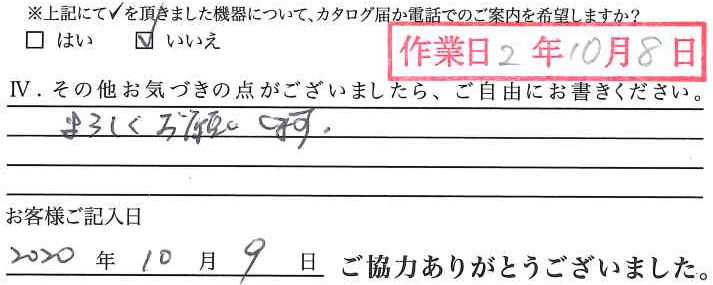 ※上記にて✓を頂きました機器について、カタログ届か電話でのご案内を希望しますか?
□ はい ☑ いいえ
作業日 2 年 10 月 8 日
Ⅳ. その他お気づきの点がございましたら、ご自由にお書きください。
よろしくお願い
お客様ご記入日
2020 年 10 月 9 日 ご協力ありがとうございました。